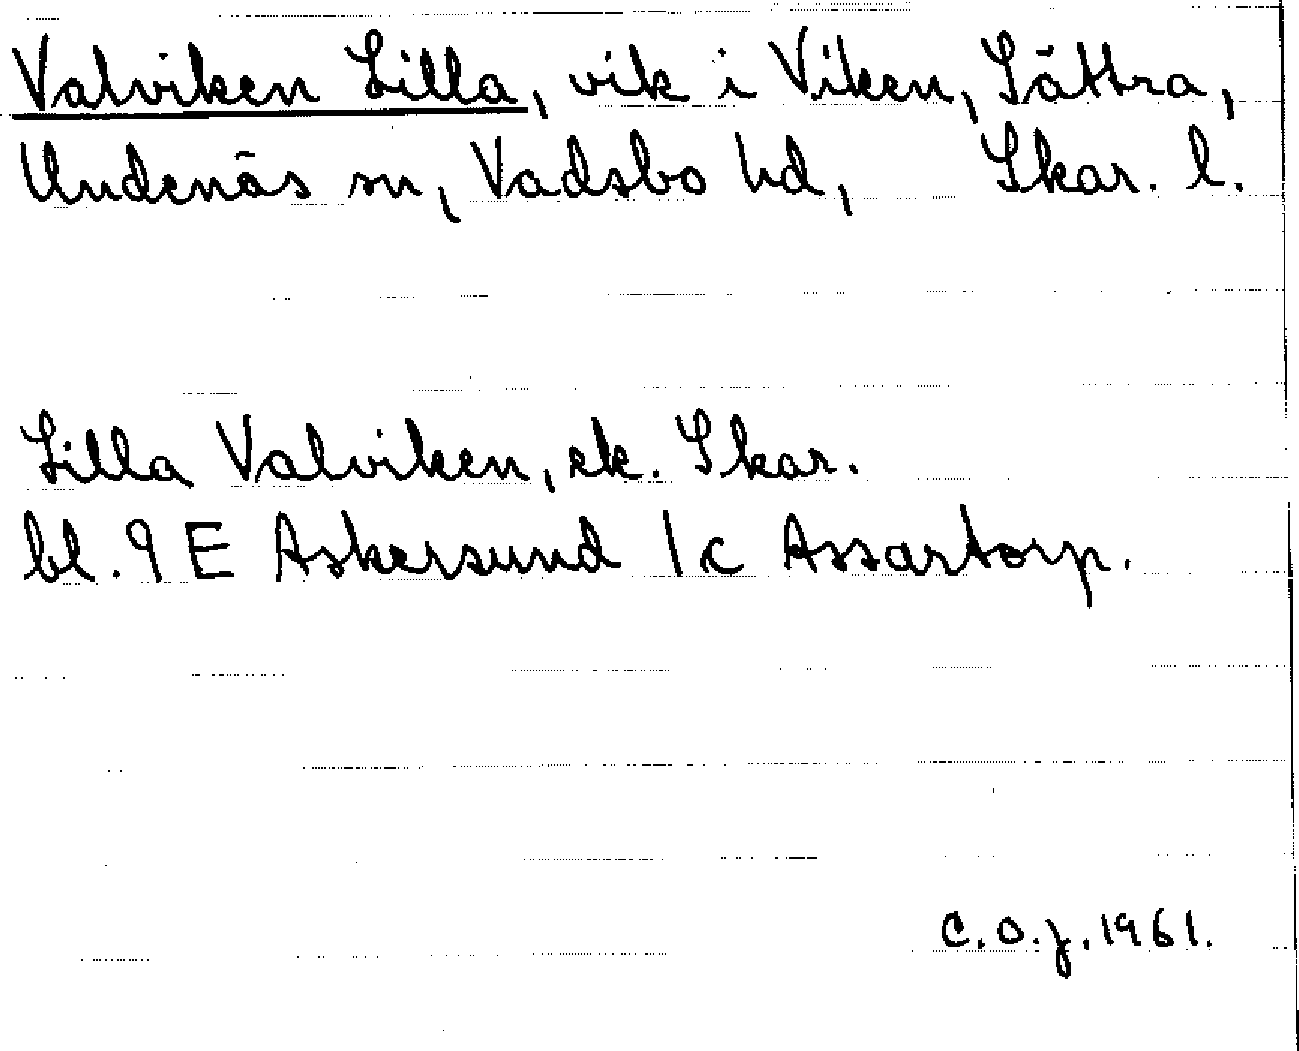 Valviken Lilla, vik i Viken, Sättra,
Undenäs sn, Vadsbo hd, Skar. l.
Lilla Valviken, ek. Skar.
bl. 9 E Askersund 1 c Assartorp.
C.O.J. 1961.